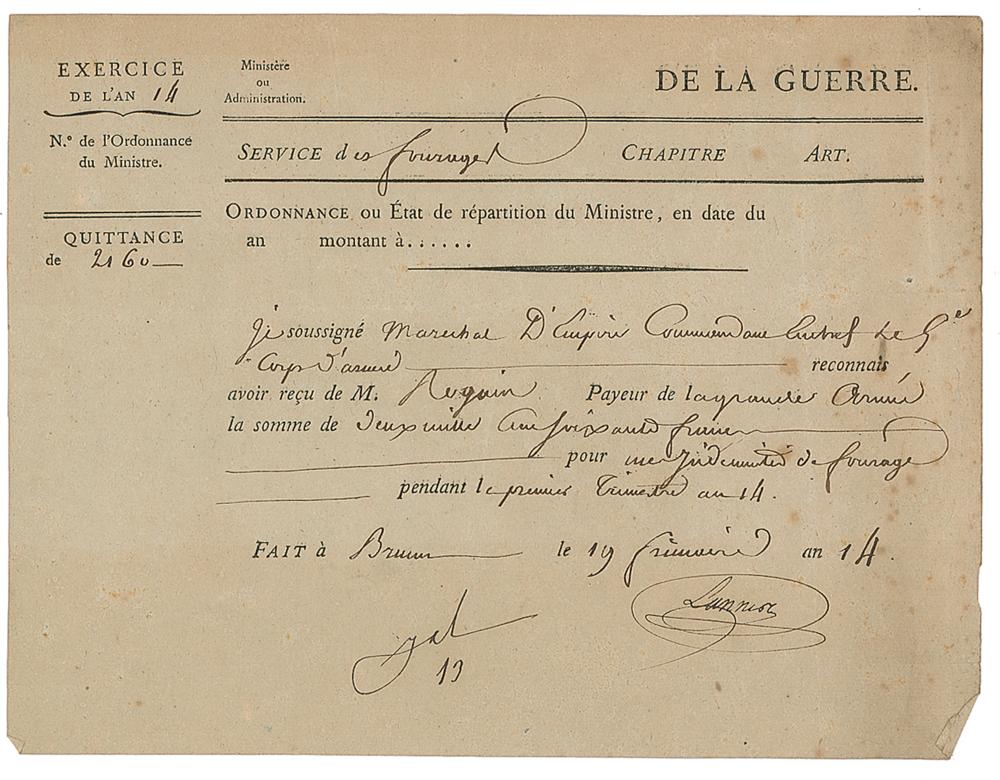 EXERCICE
DE L'AN 14
N.º de l'Ordonnance
du Ministre.
QUITTANCE
de 2160
Ministère
ou
Administration.
DE LA GUERRE.
SERVICE des fourages CHAPITRE ART.
ORDONNANCE ou État de répartition du Ministre, en date du
an montant à......
Je soussigné Marechal D'Empire Commendant Enchef Le 5e
Corps d'armé reconnais
avoir reçu de M. Roguin Payeur de la grande Armé
la somme de deux mille Cent soixante francs
pour mes Indemnités de fourage
pendant le premier Trimestre an 14.
FAIT à Brunn le 19 frimaire an 14.
Lannes
13